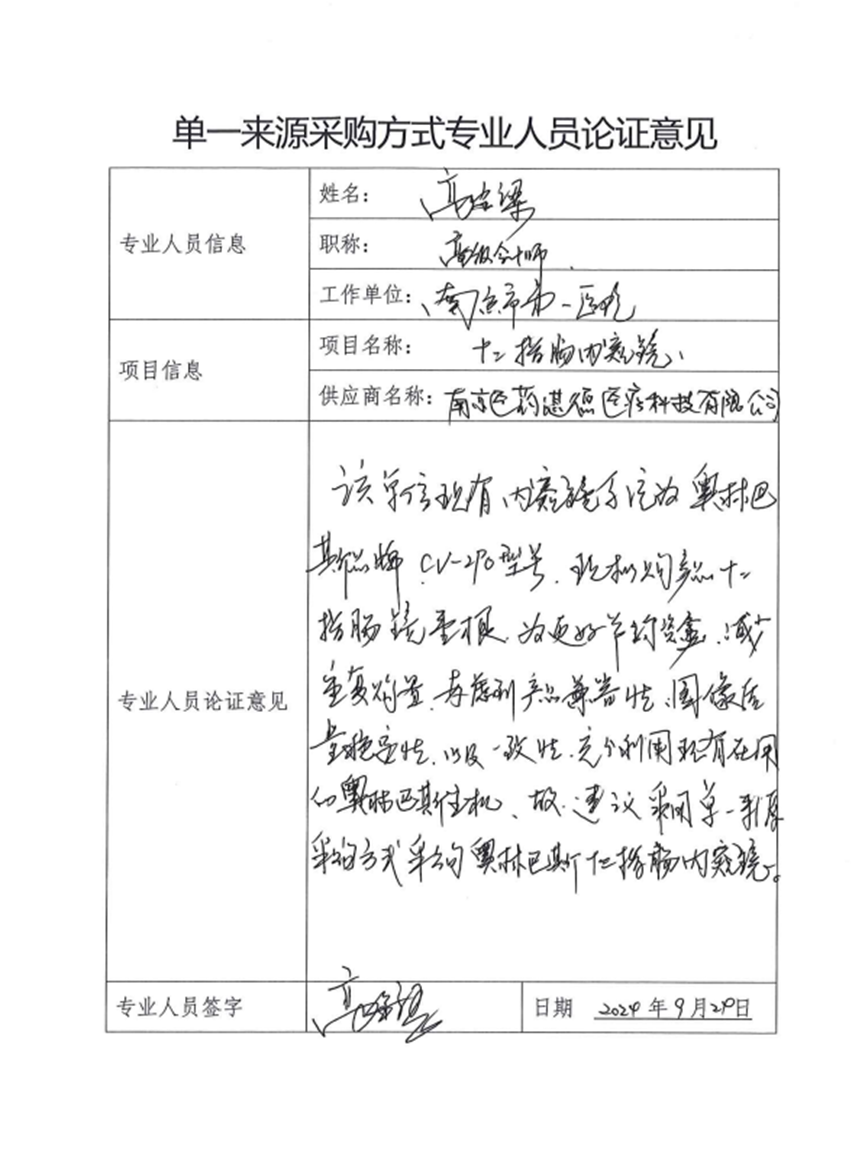 单一来源采购方式专业人员论证意见
专业人员信息
姓名：高
职称：高级会计师
工作单位：南京市第一医院
项目信息
项目名称：十二指肠内窥镜
供应商名称：南京医药湛德医疗科技有限公司
专业人员论证意见
该单位现有内窥镜系统为奥林巴
斯品牌CV-290型号，现拟购产品十二
指肠镜壹根，为更好节约资金，减少
重复购置，考虑到产品兼容性、图像质
量稳定性，以及一致性，充分利用现有在用
的奥林巴斯主机，故建议采用单一来源
采购方式采购奥林巴斯十二指肠内窥镜。
专业人员签字
高
日期 2024年9月29日